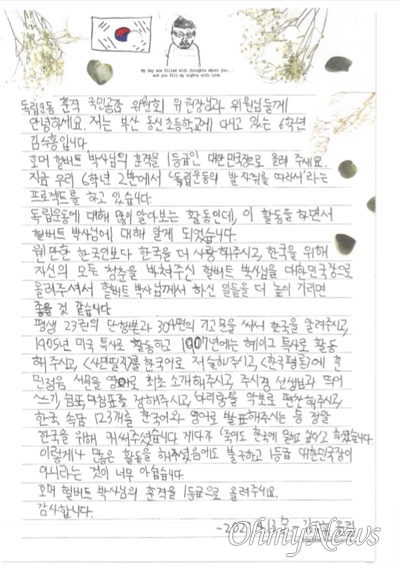 My day are filled with thoughts about you...
and you fill my nights with love.
독립운동 훈격 국민공감 위원회 위원장님과 위원님들께
안녕하세요. 저는 부산 동신초등학교에 다니고 있는 6학년
입니다.
호머 헐버트 박사님의 훈격을 1등급인 대한민국장으로 올려 주세요.
지금 우리 6학년 2반에서 <독립운동의 발자취를 따라서>라는
프로젝트를 하고 있습니다.
독립운동에 대해 많이 알아보는 활동인데, 이 활동을 하면서
헐버트 박사님에 대해 알게 되었습니다.
웬만한 한국인보다 한국을 더 사랑해주시고, 한국을 위해
자신의 모든 청춘을 바쳐주신 헐버트 박사님을 대한민국장으로
올려주셔서 헐버트 박사님께서 하신 일들을 더 높이 기리면
좋을 것 같습니다
평생 23권의 단행본과 304편의 기고문을 써서 한국을 알려주시고,
1905년 미국 특사로 활동하고 1907년에는 헤이그 특사로 활동
해주시고, <사민필지>를 한국어로 저술해주시고, <한국평론>에 훈
민정음 서문을 영어로 최초 소개해주시고, 주시경 선생님과 띄어
쓰기, 쉼표 마침표를 정해주시고, 아리랑을 악보로 편찬해주시고,
한국 속담 123개를 한국어와 영어로 발표해주시는 등 정말
한국을 위해 힘써주셨습니다. 게다가 죽어도 한국에 묻히고 싶다고 하셨습니다.
이렇게나 많은 활동을 해주셨음에도 불구하고 1등급 대한민국장이
아니라는 것이 너무 아쉽습니다.
호머 헐버트 박사님의 훈격을 1등급으로 올려주세요.
감사합니다.
OhmyNews